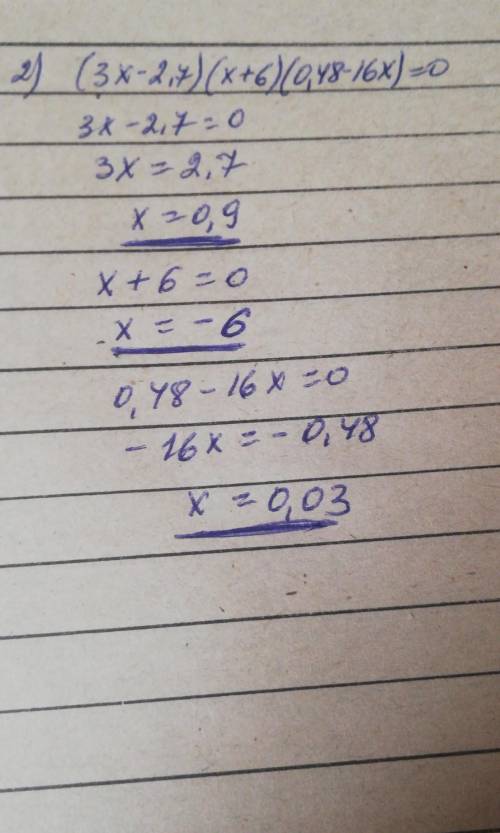 2) (3x-2,7)(x+6)(0,48-16x)=0
3x-2,7=0
3x=2,7
x=0,9
x+6=0
x=-6
0,48-16x=0
-16x=-0,48
x=0,03